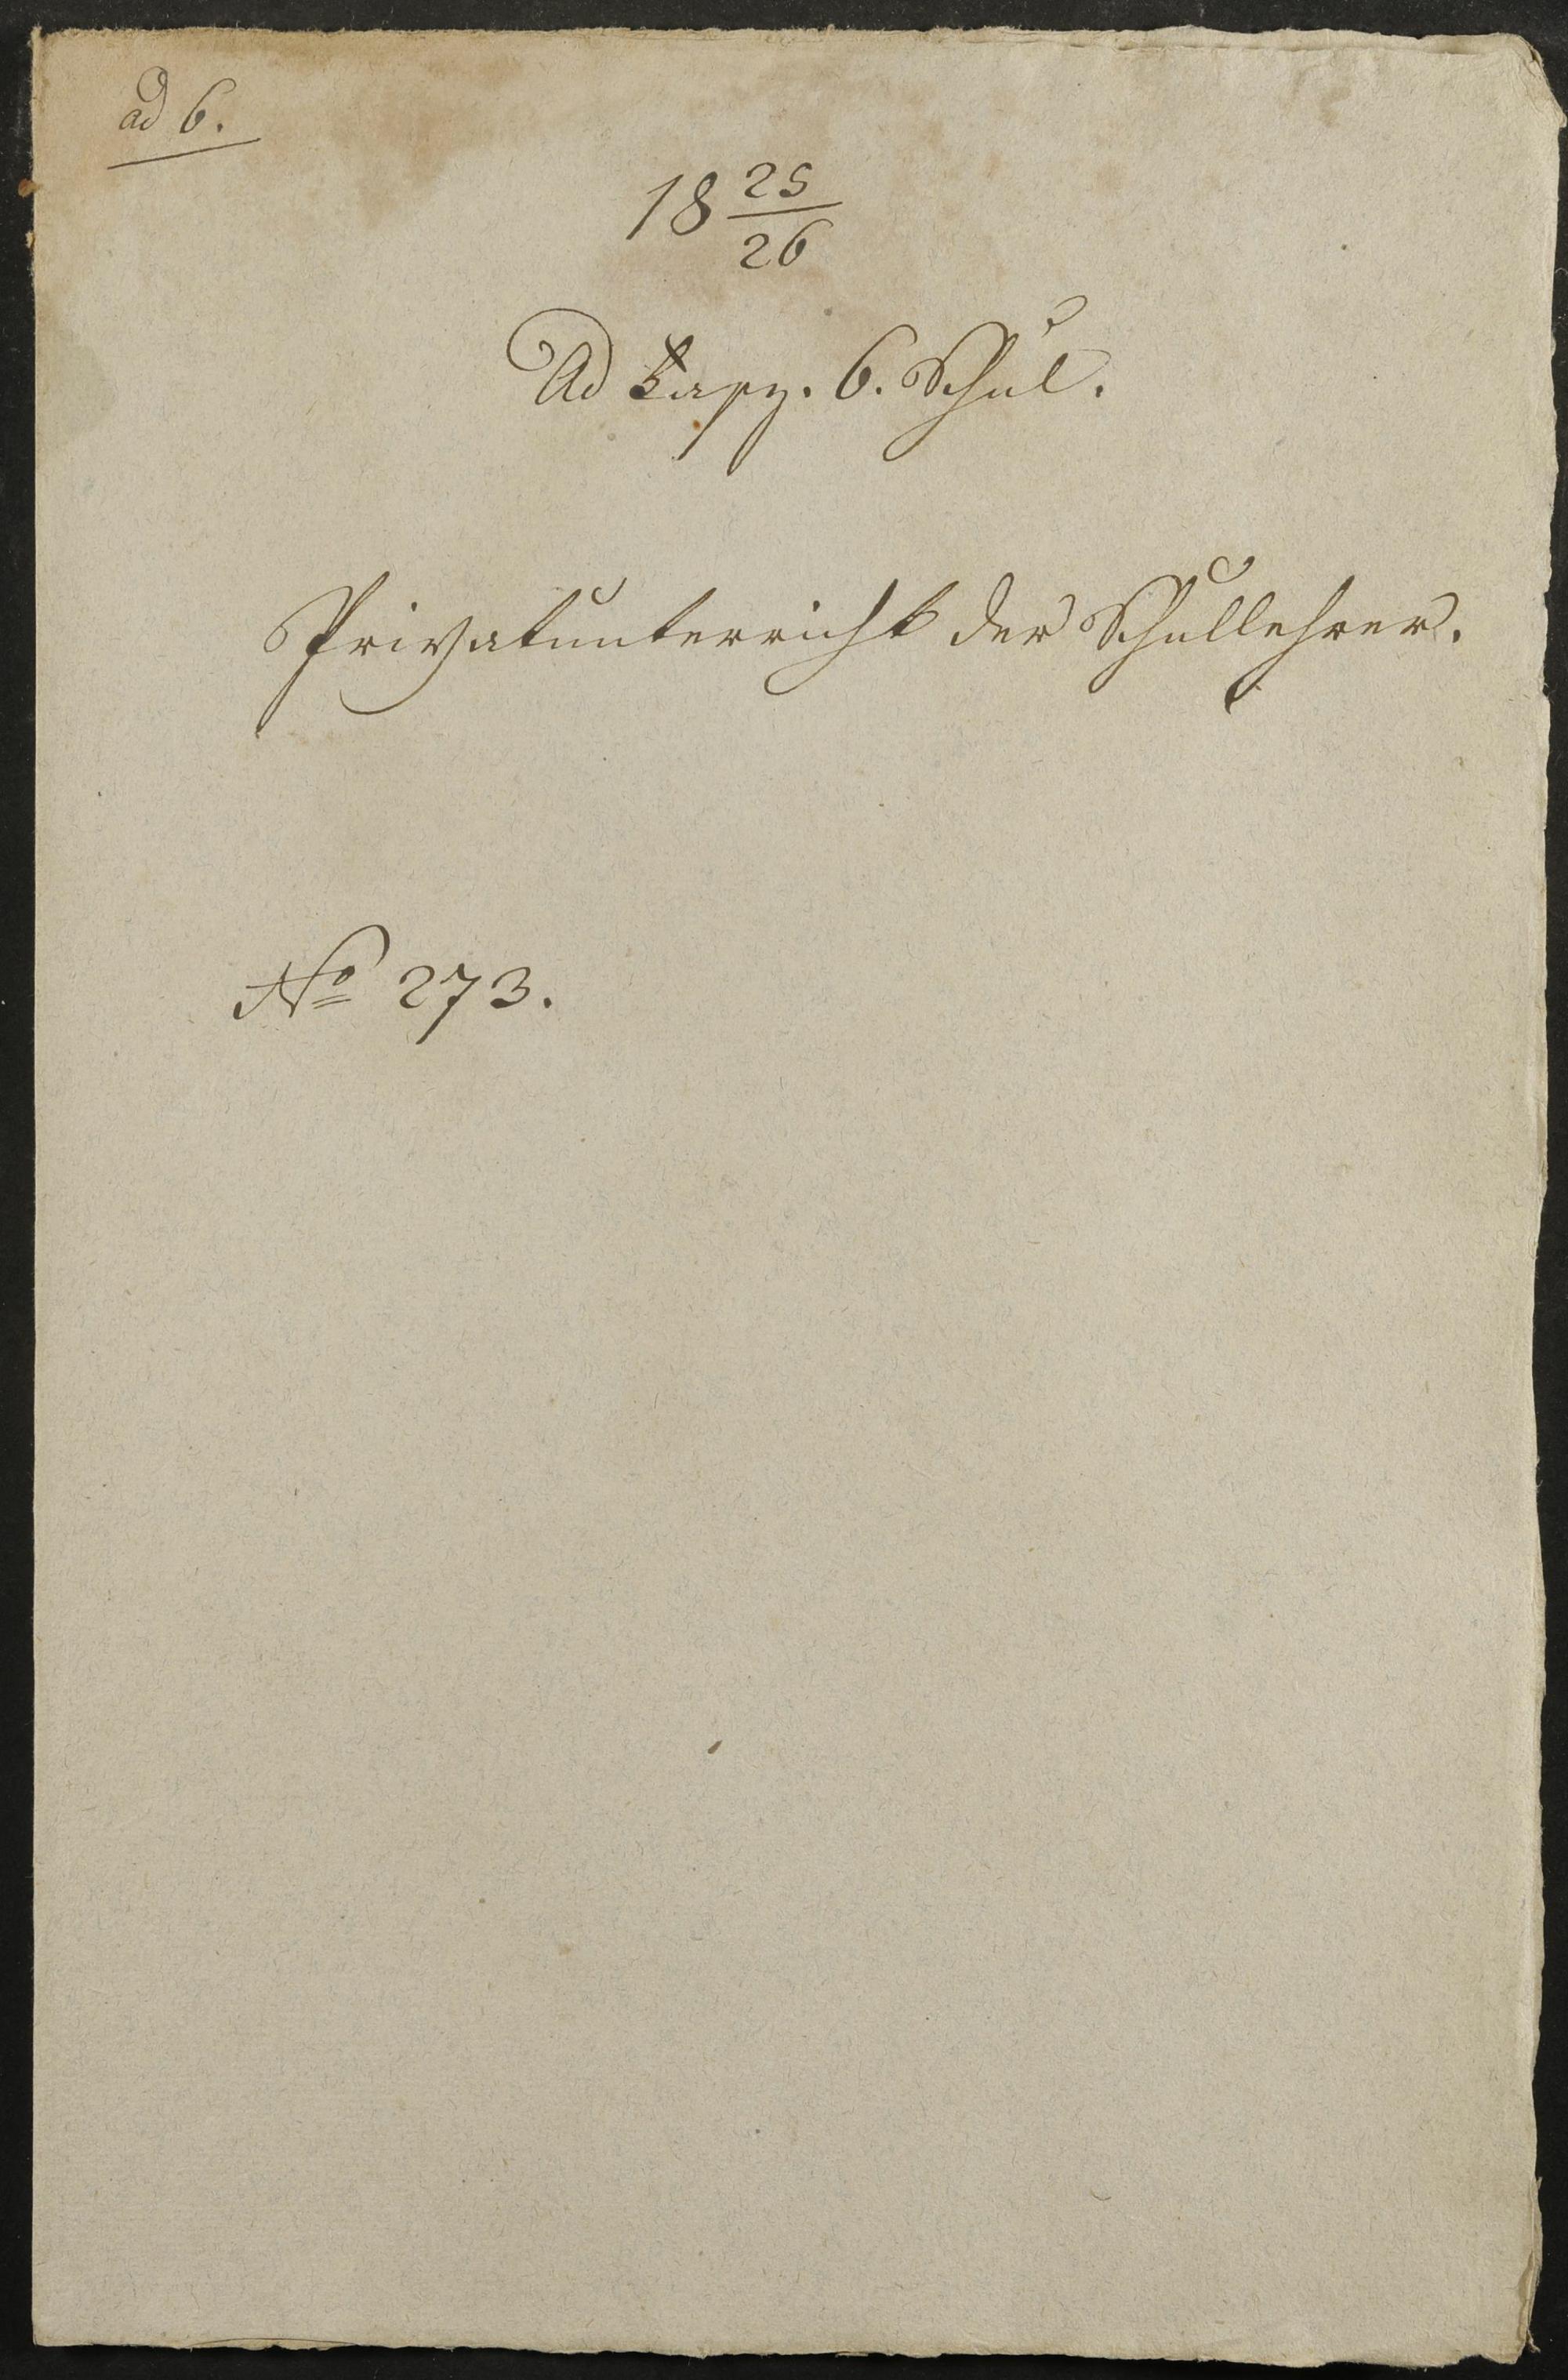 ad 6.
18 25/26
Ad Fasz. 6. Schul.
Privatunterricht der Schullehrer.
No 273.